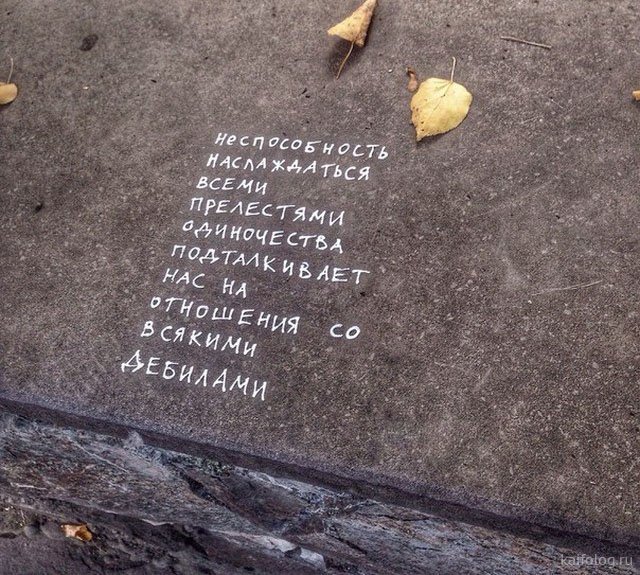 неспособность
наслаждаться
всеми
прелестями
одиночества
подталкивает
нас на
отношения со
всякими
дебилами
kaifolog.ru